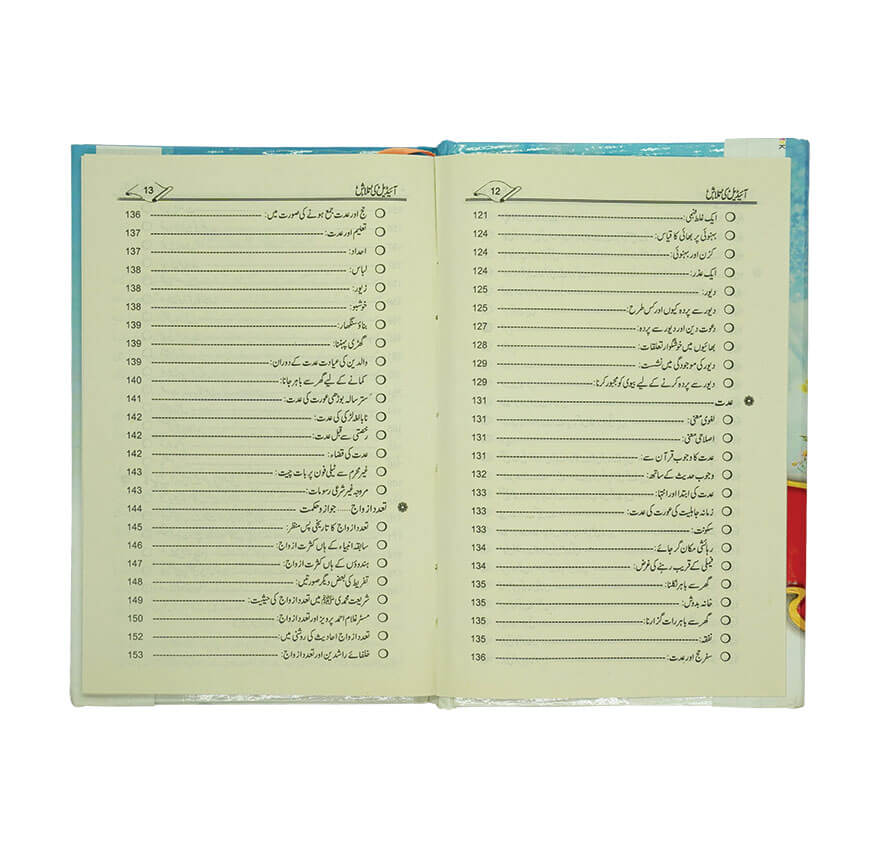 آئیڈیل کی تلاش 12
ایک غلط فہمی: 121
بہنوئی پر بھائی کا قیاس: 124
کزن اور بہنوئی: 124
ایک عذر: 124
دیور: 125
دیور سے پردہ کیوں اور کس طرح: 125
دعوت دین اور دیور سے پردہ: 127
بھائیوں میں خوشگوار تعلقات: 128
دیور کی موجودگی میں نشست: 129
دیور سے پردہ کرنے کے لیے بیوی کو مجبور کرنا: 129
عدت 131
لغوی معنی: 131
اصلاحی معنی: 131
عدت کا وجوب قرآن سے: 131
وجوب حدیث کے ساتھ: 132
عدت کی ابتدا اور انتہا: 133
زمانہ جاہلیت کی عورت کی عدت: 133
سکونت: 133
رہائشی مکان گر جائے: 134
فیملی کے قریب رہنے کی غرض: 134
گھر سے باہر نکلنا: 135
خانہ بدوش: 135
گھر سے باہر رات گزارنا: 135
نفقہ: 135
سفر حج اور عدت: 136
آئیڈیل کی تلاش 13
حج اور عدت جمع ہونے کی صورت میں: 136
تعلیم اور عدت: 137
احداد: 137
لباس: 138
زیور: 138
خوشبو: 138
بناؤ سنگھار: 139
گھڑی پہننا: 139
والدین کی عیادت عدت کے دوران: 139
کمانے کے لیے گھر سے باہر جانا: 140
ستر سالہ بوڑھی عورت کی عدت: 141
نابالغہ لڑکی کی عدت: 142
رخصتی سے قبل عدت: 142
عدت کی قضاء: 142
غیر محرم سے ٹیلی فون پر بات چیت: 143
مروجہ غیر شرعی رسومات: 143
تعدد ازواج ...... جواز و حکمت 144
تعدد ازواج کا تاریخی پس منظر: 145
سابقہ انبیاء کے ہاں کثرت ازواج: 146
ہندوؤں کے ہاں کثرت ازواج: 147
تفریط کی بعض دیگر صورتیں: 148
شریعت محمدی ﷺ میں تعدد ازواج کی حیثیت: 149
مسٹر غلام احمد پرویز اور تعدد ازواج: 150
تعدد ازواج احادیث کی روشنی میں: 152
خلفائے راشدین اور تعدد ازواج: 153